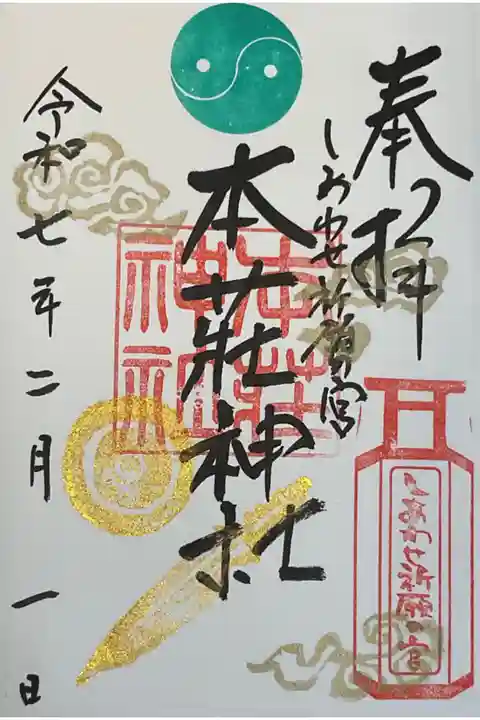 奉拝
しあわせ祈願宮
本荘神社
本荘神社
令和七年二月一日
しあわせ祈願の宮